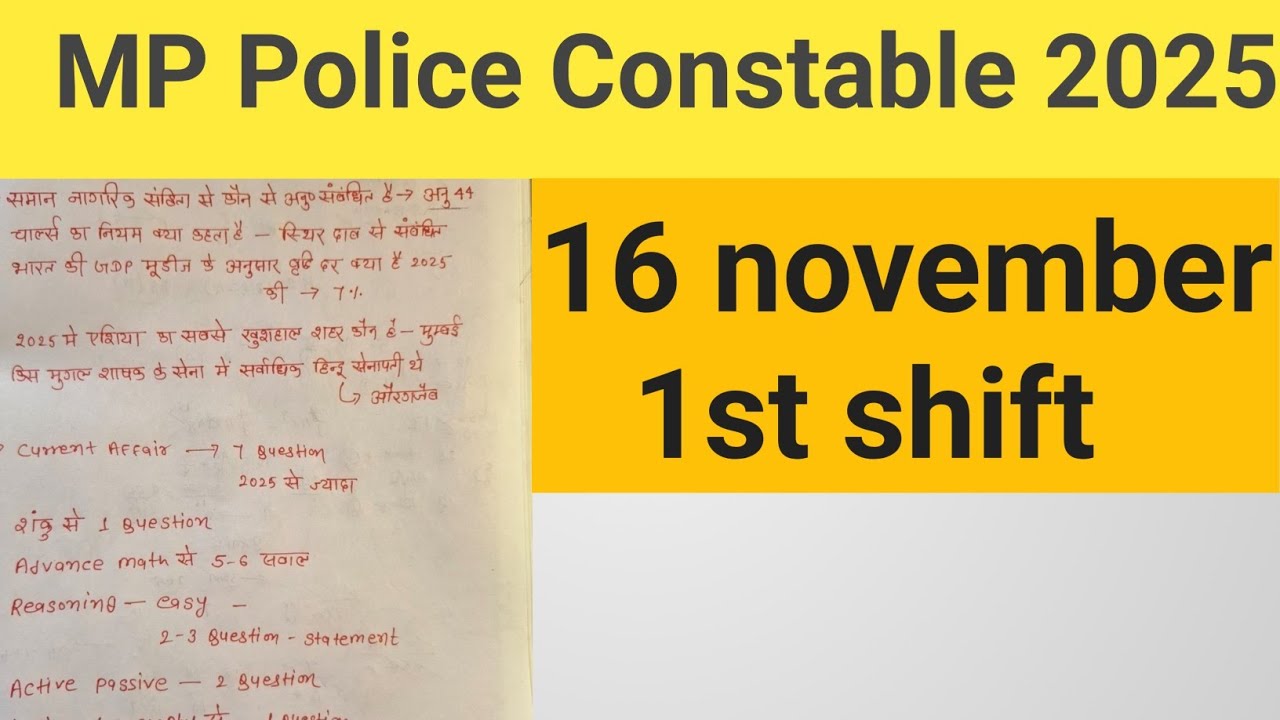 MP Police Constable 2025
समान नागरिक संहिता से कौन से अनु० संबंधित है → अनु 44
चार्ल्स का नियम क्या कहता है – स्थिर दाब से संबंधित
भारत की GDP मूडीज के अनुसार वृद्धि दर क्या है 2025
की → 7%
2025 मे एशिया का सबसे खुशहाल शहर कौन है – मुम्बई
किस मुगल शाषक के सेना में सर्वाधिक हिन्दू सेनापती थे
↳ औरंगजेब
Current Affair → 7 Question
2025 से ज्यादा
शंकु से 1 Question
Advance math से 5-6 सवाल
Reasoning – easy –
2-3 Question - statement
Active passive – 2 Question
1 Question
16 november
1st shift